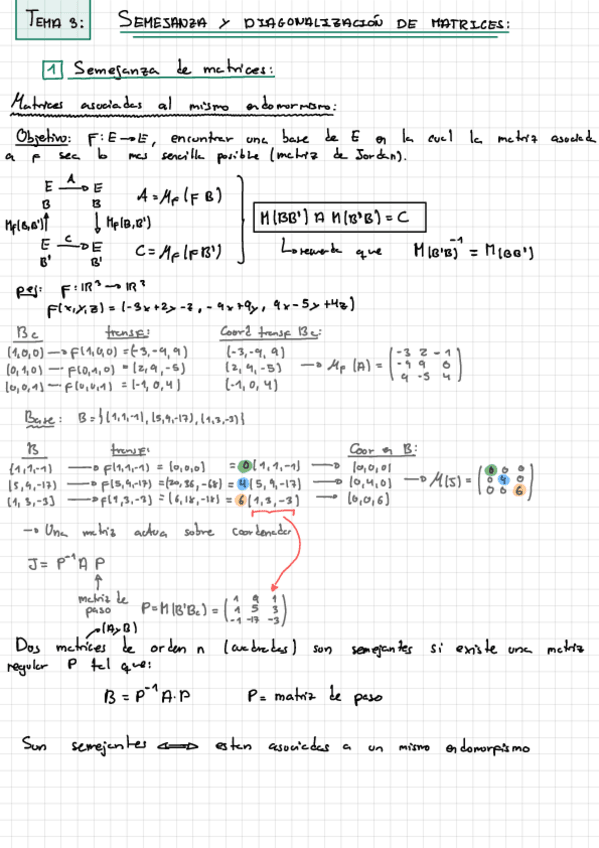 TEMA 3: SEMEJANZA Y DIAGONALIZACIÓN DE MATRICES:
1 Semejanza de matrices:
Matrices asociadas al mismo endomorfismo:
Objetivo: F: E→E, encontrar una base de E en la cual la matriz asociada
a F sea lo mas sencilla posible (matriz de Jordan).
E —A→ E A = M_F (F B)
B B
M_F(B,B')↑ ↓M_F(B,B') M(BB') A M(B'B) = C
E —C→ E C = M_F (F B') Recuerda que M(B'B)⁻¹ = M(BB')
B' B'
pej: F: ℝ³ → ℝ³
F(x,y,z) = (-3x+2y-z, -9x+9y, 9x-5y+4z)
Bc transf: Coord transf Bc:
(1,0,0) → F(1,0,0) = (-3,-9,9) (-3,-9,9)
(0,1,0) → F(0,1,0) = (2,9,-5) (2,9,-5) → M_F (A) = (-3 2 -1
-9 9 0
9 -5 4)
(0,0,1) → F(0,0,1) = (-1,0,4) (-1,0,4)
Base: B = {(1,1,-1), (5,9,-17), (1,3,-3)}
B transf: Coor en B:
(1,1,-1) → F(1,1,-1) = (0,0,0) = 0(1,1,-1) → (0,0,0)
(5,9,-17) → F(5,9,-17) = (20,36,-68) = 4(5,9,-17) → (0,4,0) → M(J) = (0 0 0
0 4 0
0 0 6)
(1,3,-3) → F(1,3,-3) = (6,18,-18) = 6(1,3,-3) → (0,0,6)
→ Una matriz actua sobre coordenadas
J = P⁻¹ A P
↑
matriz de
paso P = M(B'Bc) = (1 9 1
1 5 3
-1 -17 -3)
(A y B)
Dos matrices de orden n (cuadradas) son semejantes si existe una matriz
regular P tal que:
B = P⁻¹ A · P P = matriz de paso
Sun semejantes ⟺ estan asociadas a un mismo endomorfismo